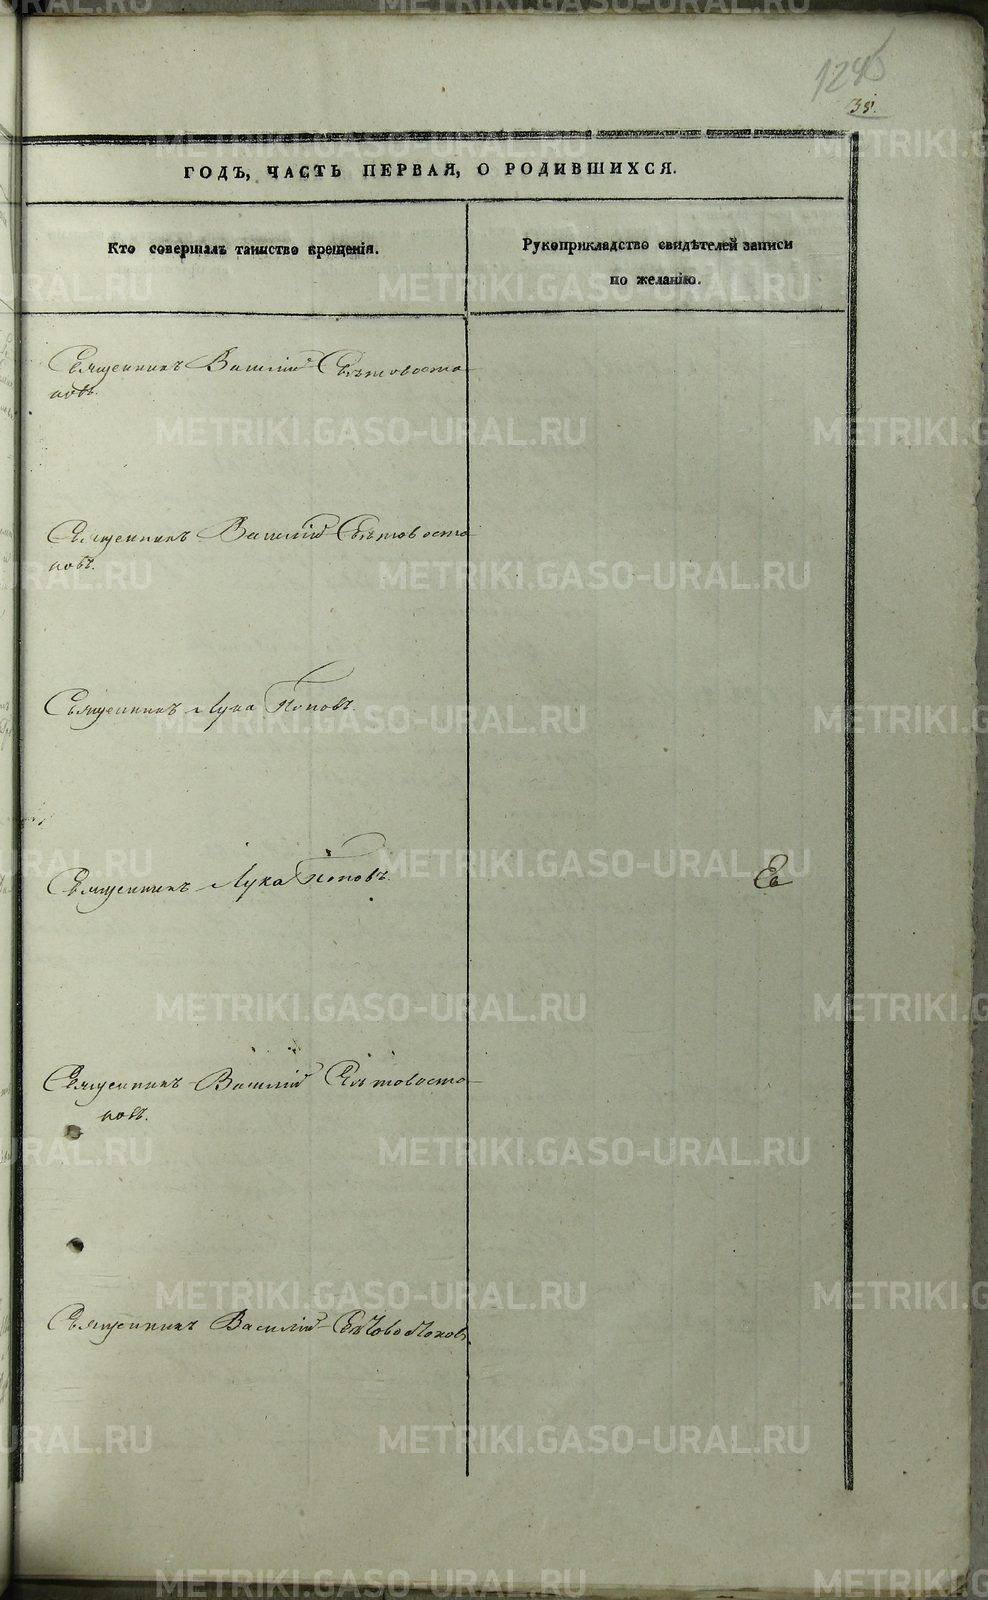 1245
35.
ГОДЪ, ЧАСТЬ ПЕРВАЯ, О РОДИВШИХСЯ.
Кто совершалъ таинство крещенія.
Рукоприкладство свидѣтелей записи
по желанію.
Священникъ Василій Свѣтовосто-
ковъ.
Священникъ Василій Свѣтовосто-
ковъ.
Священникъ Лука Поповъ.
Священникъ Лука Поповъ.
Священникъ Василій Свѣтовосто-
ковъ.
Священникъ Василій Свѣтовостоковъ.
METRIKI.GASO-URAL.RU